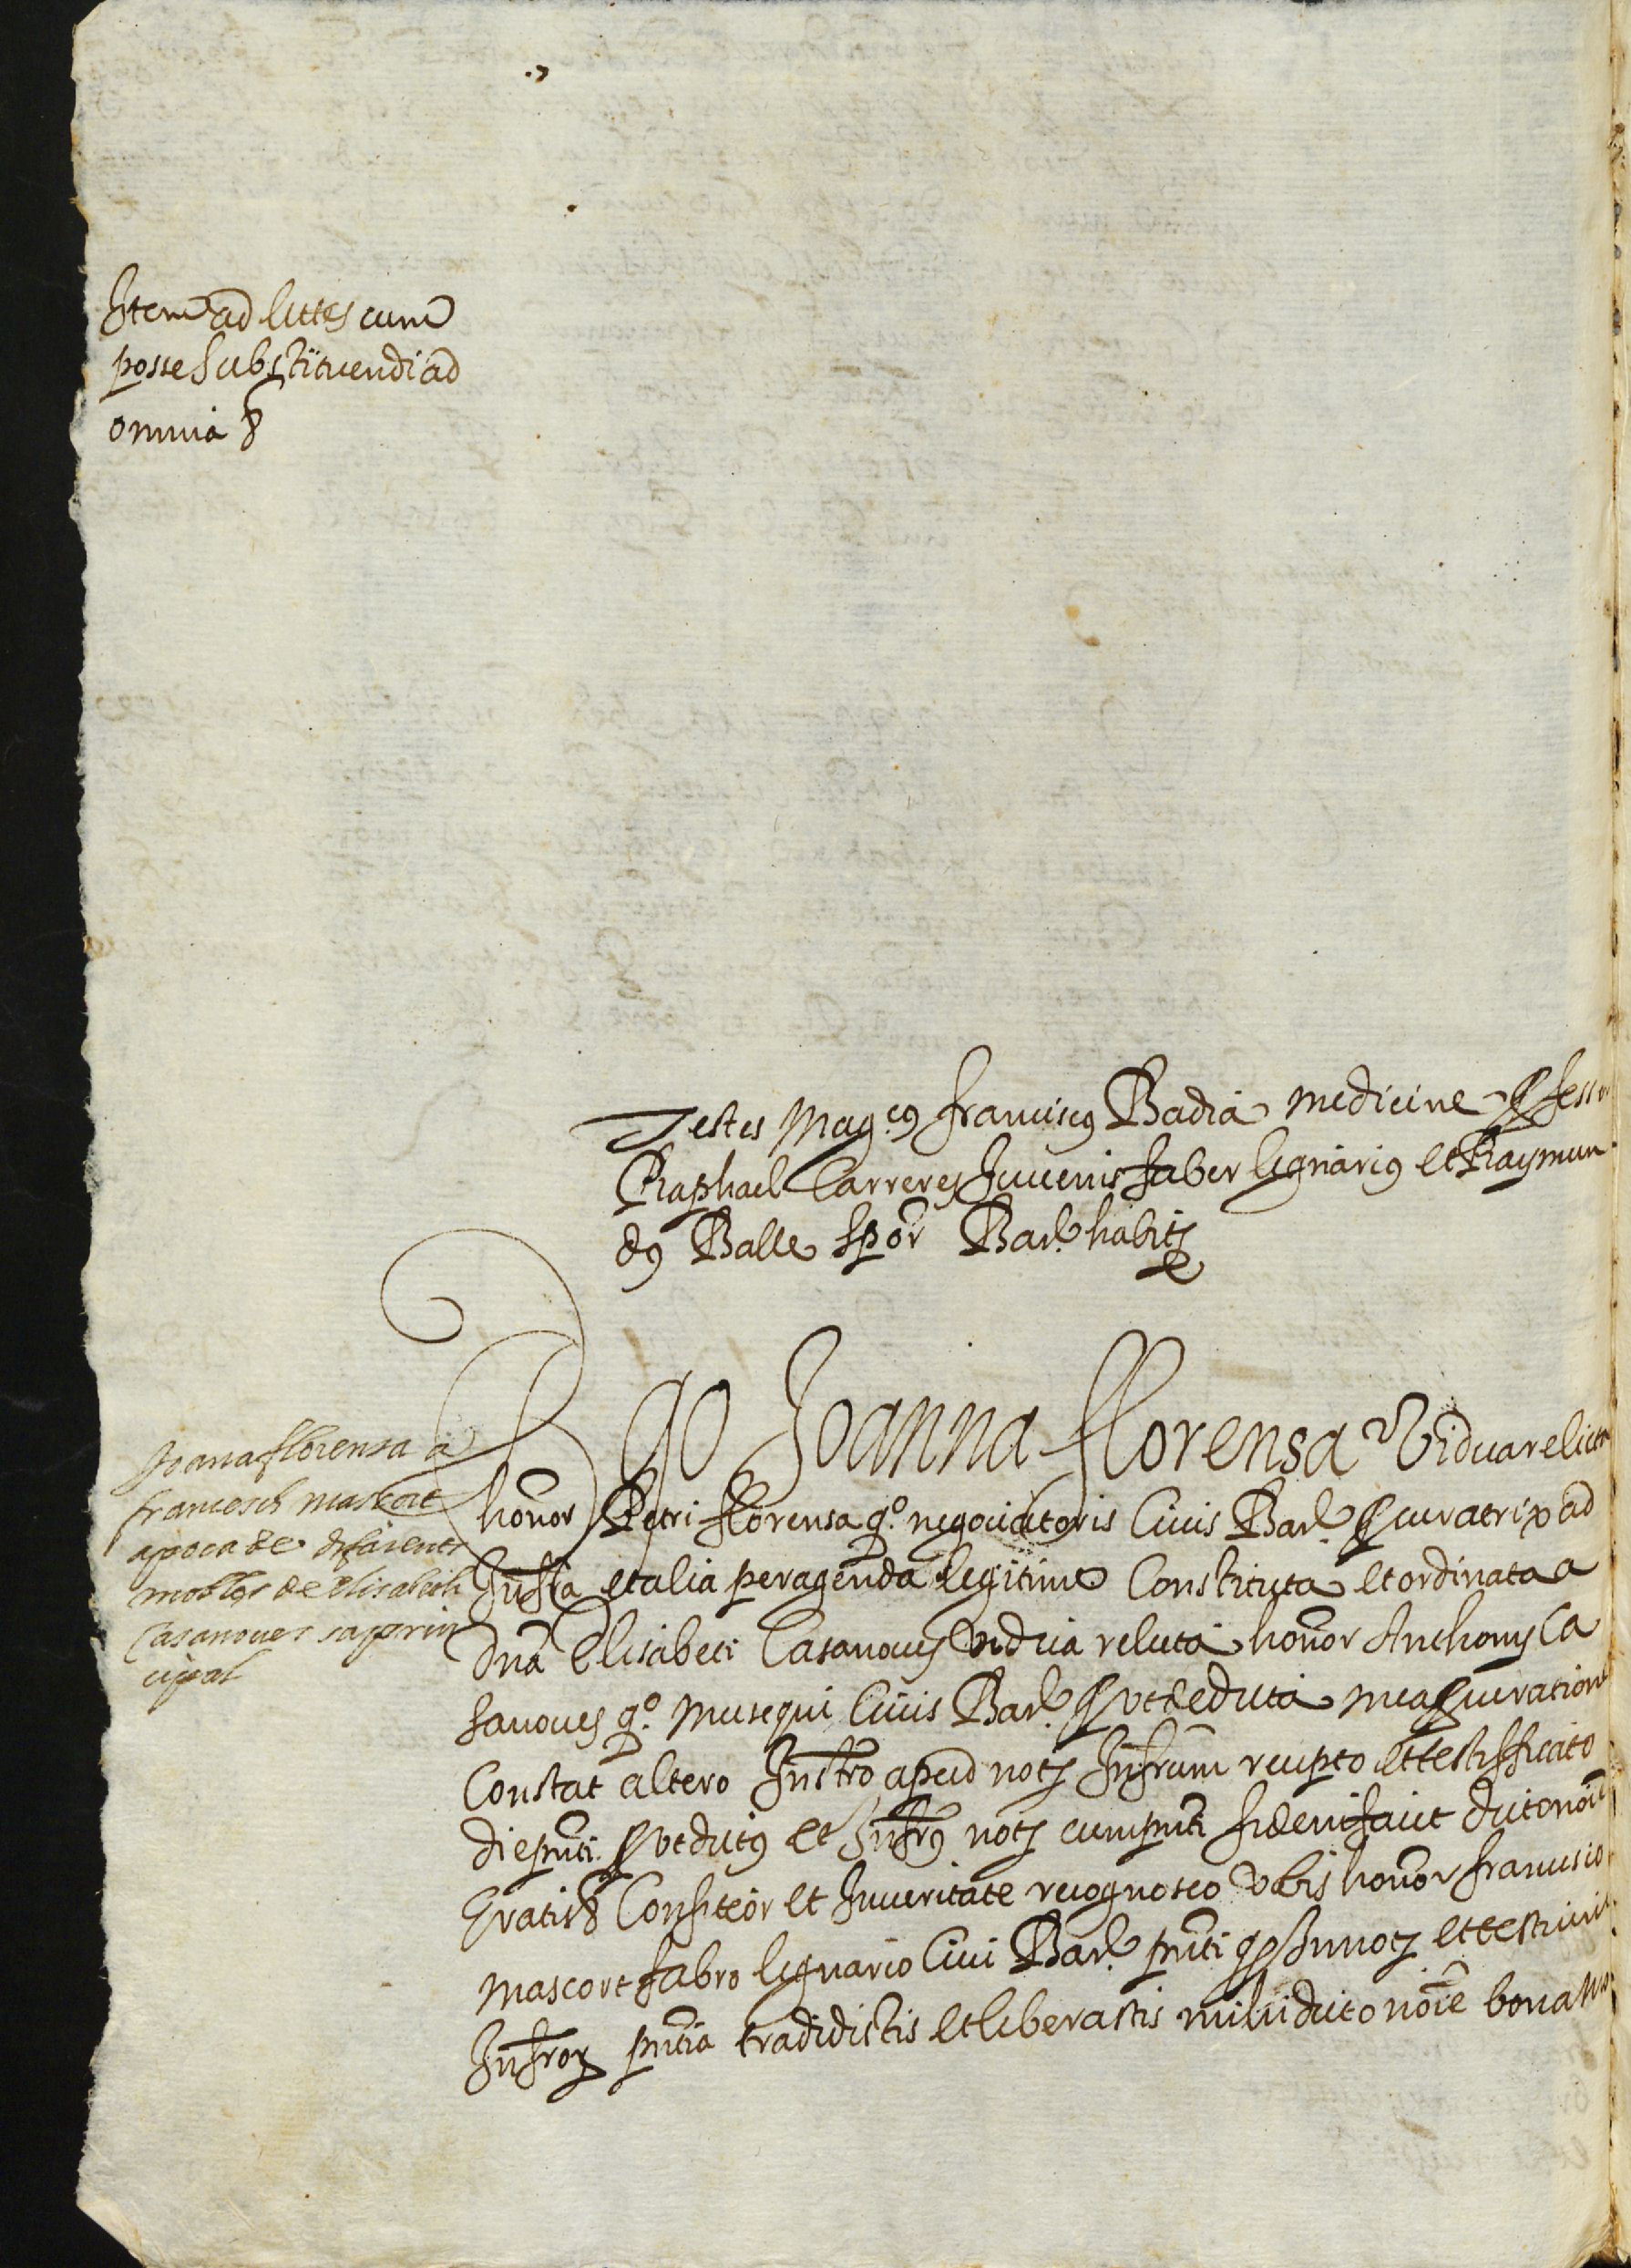 Item ad littes cum
posse substituendi ad
omnia &
Testes Mag.cus franciscus Badia medicine professor
Raphael Carreres Juvenis faber lignarius et Raymun
dus Balle scptor Bar.e habits
Joana florensa a
francesch mascort
apoca de diferents
mobles de Elisabeth
Casanoves sa prin
cipal
Ego Joanna fflorensa Vidua relicta
honor Petri fflorensa q.o negociatoris Civis Bar.e procuratrix ad
Infra et alia peragenda legitime Constituta et ordinata a
dna Elisabeti Casanoves vidua relicta honor Anthonij Ca
sanoves q.o Civis Bar.e prout de dicta mea procuratione
Constat altero Instro apud nots Infrum recepto et testifficato
die pnti. prout dictus et Infrus nots cum pnti fidem facit dicto noie
Gratis & Confiteor et In veritate recognosco vobis honor francisco
Mascort fabro lignario Civi Bar.e pnti nots et testium
Infror pntia tradidistis et liberastis mihi dicto noie bona